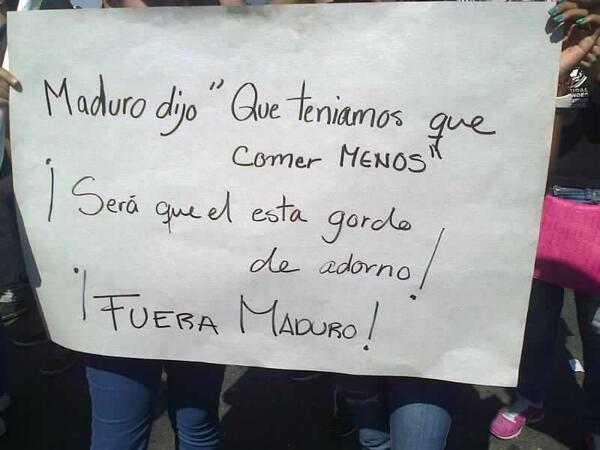 Maduro dijo "Que teniamos que
comer MENOS"
¡Será que el esta gordo
de adorno!
¡FUERA MADURO!